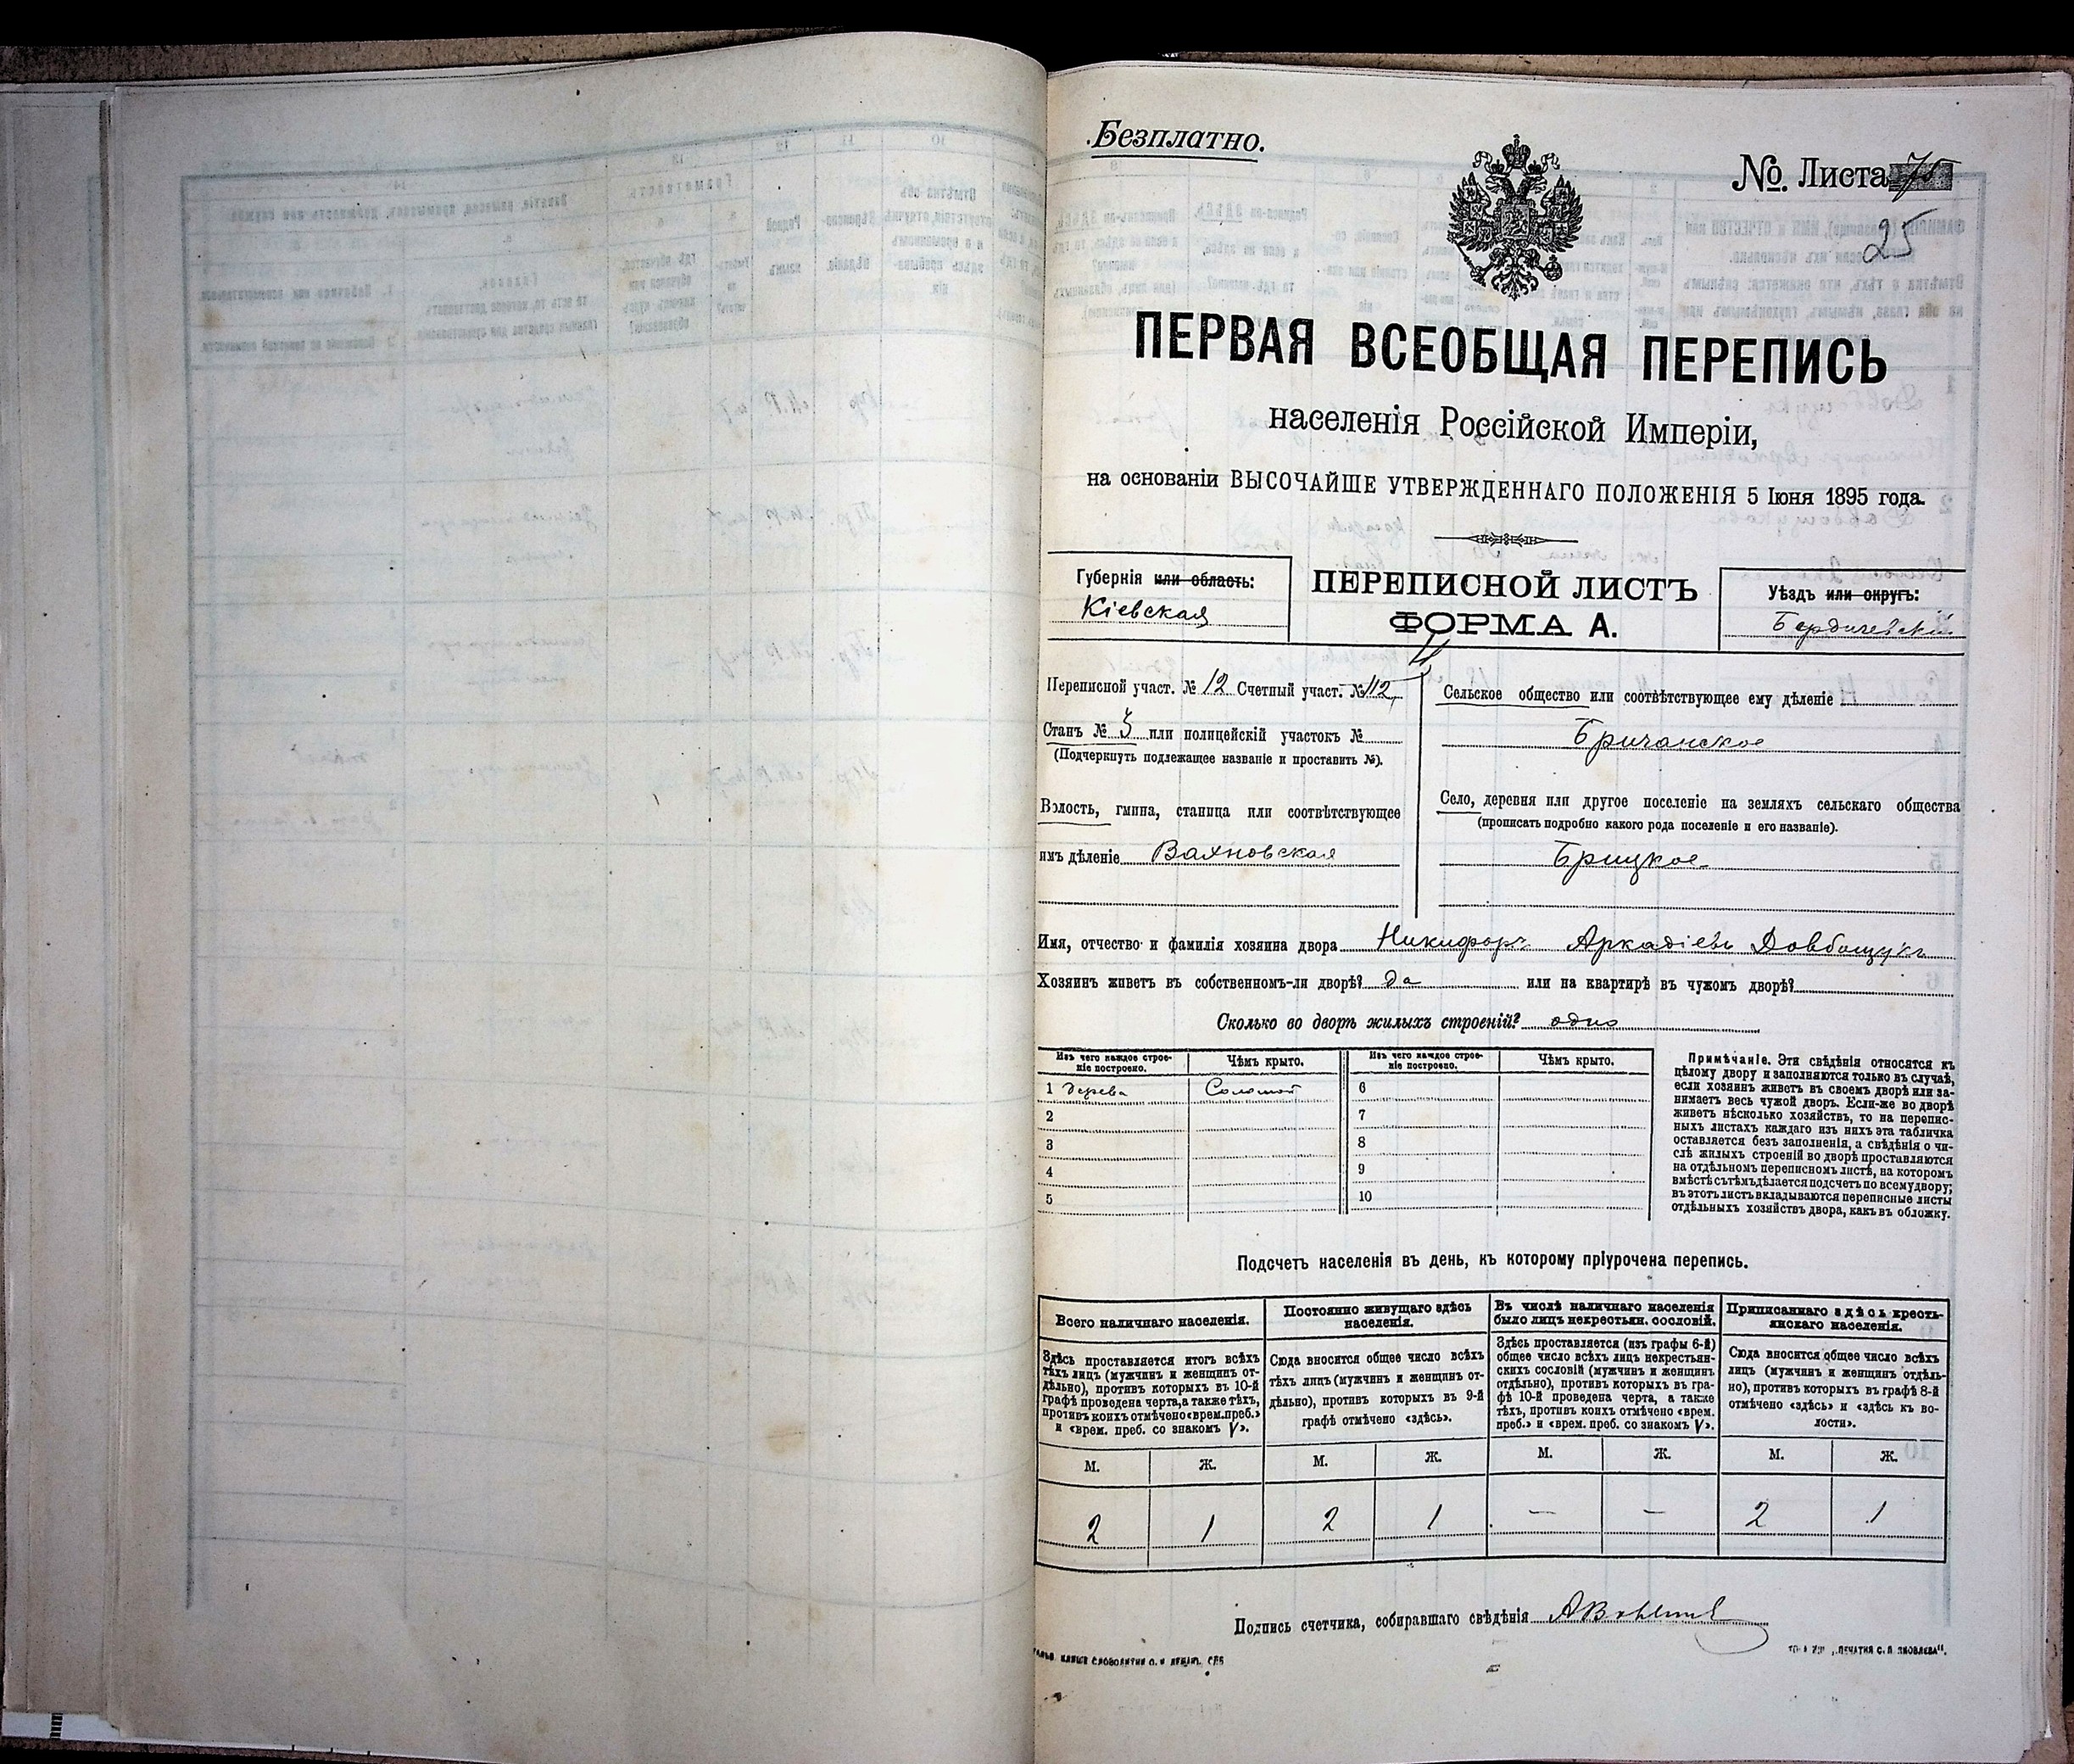 Безплатно.
№ Листа
25
ПЕРВАЯ ВСЕОБЩАЯ ПЕРЕПИСЬ
населенія Россійской Имперіи,
на основаніи ВЫСОЧАЙШЕ УТВЕРЖДЕННАГО ПОЛОЖЕНІЯ 5 Іюня 1895 года.
Губернія или область:
Кіевская
ПЕРЕПИСНОЙ ЛИСТЪ
ФОРМА А.
Уѣздъ или округъ:
Бердичевскій
Переписной участ. № 12 Счетный участ. № 112
Станъ № 3 или полицейскій участокъ №
(Подчеркнуть подлежащее названіе и проставить №).
Волость, гмина, станица или соотвѣтствующее
имъ дѣленіе Вахновская
Сельское общество или соотвѣтствующее ему дѣленіе
Бричанское
Село, деревня или другое поселеніе на земляхъ сельскаго общества
(прописать подробно какого рода поселеніе и его названіе).
Брицкое
Имя, отчество и фамилія хозяина двора Никифоръ Аркадіевъ Довбощукъ
Хозяинъ живетъ въ собственномъ-ли дворѣ? да или на квартирѣ въ чужомъ дворѣ?
Сколько во дворѣ жилыхъ строеній? одно
Изъ чего каждое строе-
ніе построено.
Чѣмъ крыто.
Изъ чего каждое строе-
ніе построено.
Чѣмъ крыто.
1 дерева Соломой 6
2 7
3 8
4 9
5 10
Примѣчаніе. Эти свѣдѣнія относятся къ
цѣлому двору и заполняются только въ случаѣ,
если хозяинъ живетъ въ своемъ дворѣ или за-
нимаетъ весь чужой дворъ. Если-же во дворѣ
живетъ нѣсколько хозяйствъ, то на перепис-
ныхъ листахъ каждаго изъ нихъ эта табличка
оставляется безъ заполненія, а свѣдѣнія о чи-
слѣ жилыхъ строеній во дворѣ проставляются
на отдѣльномъ переписномъ листѣ, на которомъ
вмѣстѣ съ тѣмъ дѣлается подсчетъ по всему двору;
въ этотъ листъ вкладываются переписные листы
отдѣльныхъ хозяйствъ двора, какъ въ обложку.
Подсчетъ населенія въ день, къ которому пріурочена перепись.
Всего наличнаго населенія.
Здѣсь проставляется итогъ всѣхъ
тѣхъ лицъ (мужчинъ и женщинъ от-
дѣльно), противъ которыхъ въ 10-й
графѣ проведена черта, а также тѣхъ,
противъ коихъ отмѣчено «врем. преб.»
и «врем. преб. со знакомъ V».
Постоянно живущаго здѣсь
населенія.
Сюда вносится общее число всѣхъ
тѣхъ лицъ (мужчинъ и женщинъ от-
дѣльно), противъ которыхъ въ 9-й
графѣ отмѣчено «здѣсь».
Въ числѣ наличнаго населенія
было лицъ некрестьян. сословій.
Здѣсь проставляется (изъ графы 6-й)
общее число всѣхъ лицъ некрестьян-
скихъ сословій (мужчинъ и женщинъ
отдѣльно), противъ которыхъ въ гра-
фѣ 10-й проведена черта, а также
тѣхъ, противъ коихъ отмѣчено «врем.
преб.» и «врем. преб. со знакомъ V».
Приписаннаго здѣсь кресть-
янскаго населенія.
Сюда вносится общее число всѣхъ
лицъ (мужчинъ и женщинъ отдѣль-
но), противъ которыхъ въ графѣ 8-й
отмѣчено «здѣсь» и «здѣсь къ во-
лости».
М. Ж. М. Ж. М. Ж. М. Ж.
2 1 2 1 — — 2 1
Подпись счетчика, собиравшаго свѣдѣнія